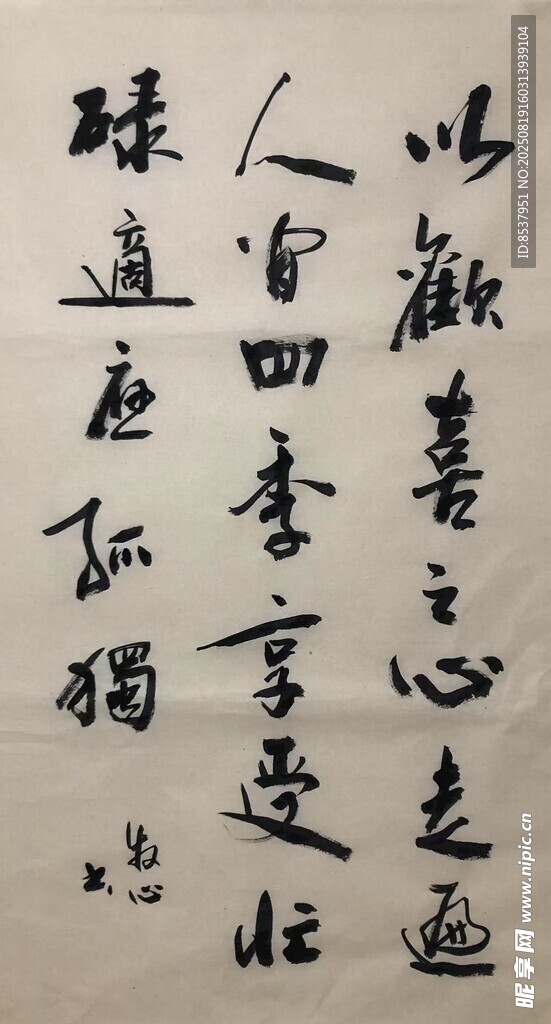 以歡喜之心走遍
人間四季享受忙
碌適應孤獨
牧心
书
ID:8537951 NO:20250819160313939104
昵享网 www.nipic.cn